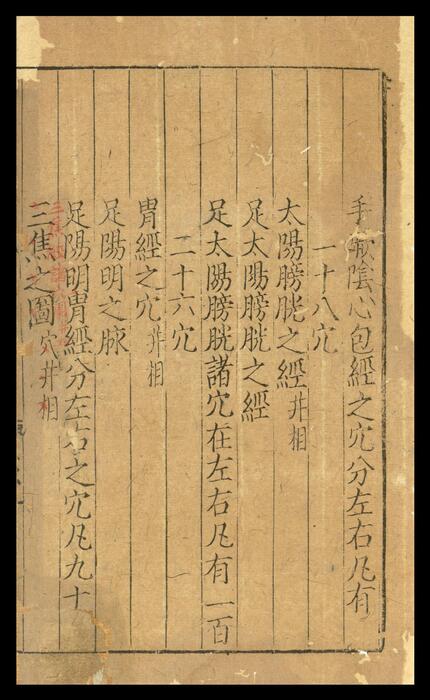 手厥陰心包經之穴分左右凡有
一十八穴
太陽膀胱之經并相
足太陽膀胱之經
足太陽膀胱諸穴在左右凡有一百
二十六穴
胃經之穴并相
足陽明之脉
足陽明胃經分左右之穴凡九十
三焦之圖穴并相